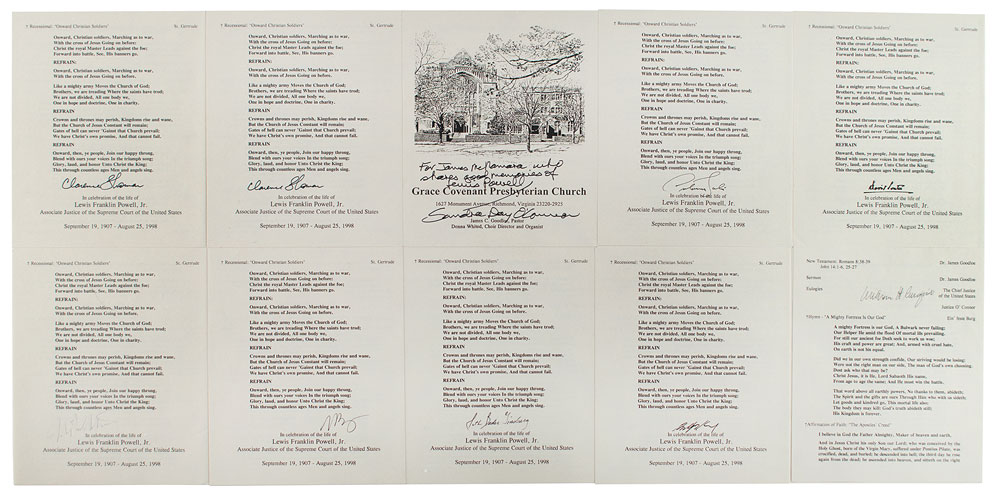 † Recessional: 'Onward Christian Soldiers' St. Gertrude
Onward, Christian soldiers, Marching as to war,
With the cross of Jesus Going on before:
Christ the royal Master Leads against the foe;
Forward into battle, See, His banners go.
REFRAIN:
Onward, Christian soldiers, Marching as to war,
With the cross of Jesus Going on before.
Like a mighty army Moves the Church of God;
Brothers, we are treading Where the saints have trod;
We are not divided, All one body we,
One in hope and doctrine, One in charity.
REFRAIN
Crowns and thrones may perish, Kingdoms rise and wane,
But the Church of Jesus Constant will remain;
Gates of hell can never 'Gainst that Church prevail;
We have Christ's own promise, And that cannot fail.
REFRAIN
Onward, then, ye people, Join our happy throng,
Blend with ours your voices In the triumph song;
Glory, laud, and honor Unto Christ the King;
This through countless ages Men and angels sing.
Clarence Thomas
In celebration of the life of
Lewis Franklin Powell, Jr.
Associate Justice of the Supreme Court of the United States
September 19, 1907 - August 25, 1998
† Recessional: 'Onward Christian Soldiers' St. Gertrude
Onward, Christian soldiers, Marching as to war,
With the cross of Jesus Going on before:
Christ the royal Master Leads against the foe;
Forward into battle, See, His banners go.
REFRAIN:
Onward, Christian soldiers, Marching as to war,
With the cross of Jesus Going on before.
Like a mighty army Moves the Church of God;
Brothers, we are treading Where the saints have trod;
We are not divided, All one body we,
One in hope and doctrine, One in charity.
REFRAIN
Crowns and thrones may perish, Kingdoms rise and wane,
But the Church of Jesus Constant will remain;
Gates of hell can never 'Gainst that Church prevail;
We have Christ's own promise, And that cannot fail.
REFRAIN
Onward, then, ye people, Join our happy throng,
Blend with ours your voices In the triumph song;
Glory, laud, and honor Unto Christ the King;
This through countless ages Men and angels sing.
Clarence Thomas
In celebration of the life of
Lewis Franklin Powell, Jr.
Associate Justice of the Supreme Court of the United States
September 19, 1907 - August 25, 1998
For James McNamara who
shares good memories of
Lewis Powell
Grace Covenant Presbyterian Church
1627 Monument Avenue, Richmond, Virginia 23220-2925
Sandra Day O'Connor
James C. Goodloe, Pastor
Donna Whited, Choir Director and Organist
† Recessional: 'Onward Christian Soldiers' St. Gertrude
Onward, Christian soldiers, Marching as to war,
With the cross of Jesus Going on before:
Christ the royal Master Leads against the foe;
Forward into battle, See, His banners go.
REFRAIN:
Onward, Christian soldiers, Marching as to war,
With the cross of Jesus Going on before.
Like a mighty army Moves the Church of God;
Brothers, we are treading Where the saints have trod;
We are not divided, All one body we,
One in hope and doctrine, One in charity.
REFRAIN
Crowns and thrones may perish, Kingdoms rise and wane,
But the Church of Jesus Constant will remain;
Gates of hell can never 'Gainst that Church prevail;
We have Christ's own promise, And that cannot fail.
REFRAIN
Onward, then, ye people, Join our happy throng,
Blend with ours your voices In the triumph song;
Glory, laud, and honor Unto Christ the King;
This through countless ages Men and angels sing.
In celebration of the life of
Lewis Franklin Powell, Jr.
Associate Justice of the Supreme Court of the United States
September 19, 1907 - August 25, 1998
† Recessional: 'Onward Christian Soldiers' St. Gertrude
Onward, Christian soldiers, Marching as to war,
With the cross of Jesus Going on before:
Christ the royal Master Leads against the foe;
Forward into battle, See, His banners go.
REFRAIN:
Onward, Christian soldiers, Marching as to war,
With the cross of Jesus Going on before.
Like a mighty army Moves the Church of God;
Brothers, we are treading Where the saints have trod;
We are not divided, All one body we,
One in hope and doctrine, One in charity.
REFRAIN
Crowns and thrones may perish, Kingdoms rise and wane,
But the Church of Jesus Constant will remain;
Gates of hell can never 'Gainst that Church prevail;
We have Christ's own promise, And that cannot fail.
REFRAIN
Onward, then, ye people, Join our happy throng,
Blend with ours your voices In the triumph song;
Glory, laud, and honor Unto Christ the King;
This through countless ages Men and angels sing.
David Souter
In celebration of the life of
Lewis Franklin Powell, Jr.
Associate Justice of the Supreme Court of the United States
September 19, 1907 - August 25, 1998
† Recessional: 'Onward Christian Soldiers' St. Gertrude
Onward, Christian soldiers, Marching as to war,
With the cross of Jesus Going on before:
Christ the royal Master Leads against the foe;
Forward into battle, See, His banners go.
REFRAIN:
Onward, Christian soldiers, Marching as to war,
With the cross of Jesus Going on before.
Like a mighty army Moves the Church of God;
Brothers, we are treading Where the saints have trod;
We are not divided, All one body we,
One in hope and doctrine, One in charity.
REFRAIN
Crowns and thrones may perish, Kingdoms rise and wane,
But the Church of Jesus Constant will remain;
Gates of hell can never 'Gainst that Church prevail;
We have Christ's own promise, And that cannot fail.
REFRAIN
Onward, then, ye people, Join our happy throng,
Blend with ours your voices In the triumph song;
Glory, laud, and honor Unto Christ the King;
This through countless ages Men and angels sing.
In celebration of the life of
Lewis Franklin Powell, Jr.
Associate Justice of the Supreme Court of the United States
September 19, 1907 - August 25, 1998
† Recessional: 'Onward Christian Soldiers' St. Gertrude
Onward, Christian soldiers, Marching as to war,
With the cross of Jesus Going on before:
Christ the royal Master Leads against the foe;
Forward into battle, See, His banners go.
REFRAIN:
Onward, Christian soldiers, Marching as to war,
With the cross of Jesus Going on before.
Like a mighty army Moves the Church of God;
Brothers, we are treading Where the saints have trod;
We are not divided, All one body we,
One in hope and doctrine, One in charity.
REFRAIN
Crowns and thrones may perish, Kingdoms rise and wane,
But the Church of Jesus Constant will remain;
Gates of hell can never 'Gainst that Church prevail;
We have Christ's own promise, And that cannot fail.
REFRAIN
Onward, then, ye people, Join our happy throng,
Blend with ours your voices In the triumph song;
Glory, laud, and honor Unto Christ the King;
This through countless ages Men and angels sing.
In celebration of the life of
Lewis Franklin Powell, Jr.
Associate Justice of the Supreme Court of the United States
September 19, 1907 - August 25, 1998
† Recessional: 'Onward Christian Soldiers' St. Gertrude
Onward, Christian soldiers, Marching as to war,
With the cross of Jesus Going on before:
Christ the royal Master Leads against the foe;
Forward into battle, See, His banners go.
REFRAIN:
Onward, Christian soldiers, Marching as to war,
With the cross of Jesus Going on before.
Like a mighty army Moves the Church of God;
Brothers, we are treading Where the saints have trod;
We are not divided, All one body we,
One in hope and doctrine, One in charity.
REFRAIN
Crowns and thrones may perish, Kingdoms rise and wane,
But the Church of Jesus Constant will remain;
Gates of hell can never 'Gainst that Church prevail;
We have Christ's own promise, And that cannot fail.
REFRAIN
Onward, then, ye people, Join our happy throng,
Blend with ours your voices In the triumph song;
Glory, laud, and honor Unto Christ the King;
This through countless ages Men and angels sing.
Ruth Bader Ginsburg
In celebration of the life of
Lewis Franklin Powell, Jr.
Associate Justice of the Supreme Court of the United States
September 19, 1907 - August 25, 1998
† Recessional: 'Onward Christian Soldiers' St. Gertrude
Onward, Christian soldiers, Marching as to war,
With the cross of Jesus Going on before:
Christ the royal Master Leads against the foe;
Forward into battle, See, His banners go.
REFRAIN:
Onward, Christian soldiers, Marching as to war,
With the cross of Jesus Going on before.
Like a mighty army Moves the Church of God;
Brothers, we are treading Where the saints have trod;
We are not divided, All one body we,
One in hope and doctrine, One in charity.
REFRAIN
Crowns and thrones may perish, Kingdoms rise and wane,
But the Church of Jesus Constant will remain;
Gates of hell can never 'Gainst that Church prevail;
We have Christ's own promise, And that cannot fail.
REFRAIN
Onward, then, ye people, Join our happy throng,
Blend with ours your voices In the triumph song;
Glory, laud, and honor Unto Christ the King;
This through countless ages Men and angels sing.
In celebration of the life of
Lewis Franklin Powell, Jr.
Associate Justice of the Supreme Court of the United States
September 19, 1907 - August 25, 1998
New Testament: Romans 8:38-39
John 14:1-6, 25-27 Dr. James Goodloe
Sermon Dr. James Goodloe
Eulogies The Chief Justice
of the United States
William H. Rehnquist
Justice O' Connor
†Hymn - 'A Mighty Fortress Is Our God' Ein' feste Burg
A mighty Fortress is our God, A Bulwark never failing;
Our Helper He amid the flood Of mortal ills prevailing.
For still our ancient foe Doth seek to work us woe;
His craft and power are great; And, armed with cruel hate,
On earth is not his equal.
Did we in our own strength confide, Our striving would be losing;
Were not the right man on our side, The man of God's own choosing.
Dost ask who that may be?
Christ Jesus, it is He, Lord Sabaoth His name,
From age to age the same; And He must win the battle.
That word above all earthly powers, No thanks to them, abideth;
The Spirit and the gifts are ours Through Him who with us sideth;
Let goods and kindred go, This mortal life also;
The body they may kill: God's truth abideth still;
His Kingdom is forever.
†Affirmation of Faith: 'The Apostles' Creed'
I believe in God the Father Almighty, Maker of heaven and earth,
And in Jesus Christ his only Son our Lord; who was conceived by the
Holy Ghost, born of the Virgin Mary, suffered under Pontius Pilate, was
crucified, dead, and buried; he descended into hell; the third day he rose
again from the dead; he ascended into heaven, and sitteth on the right